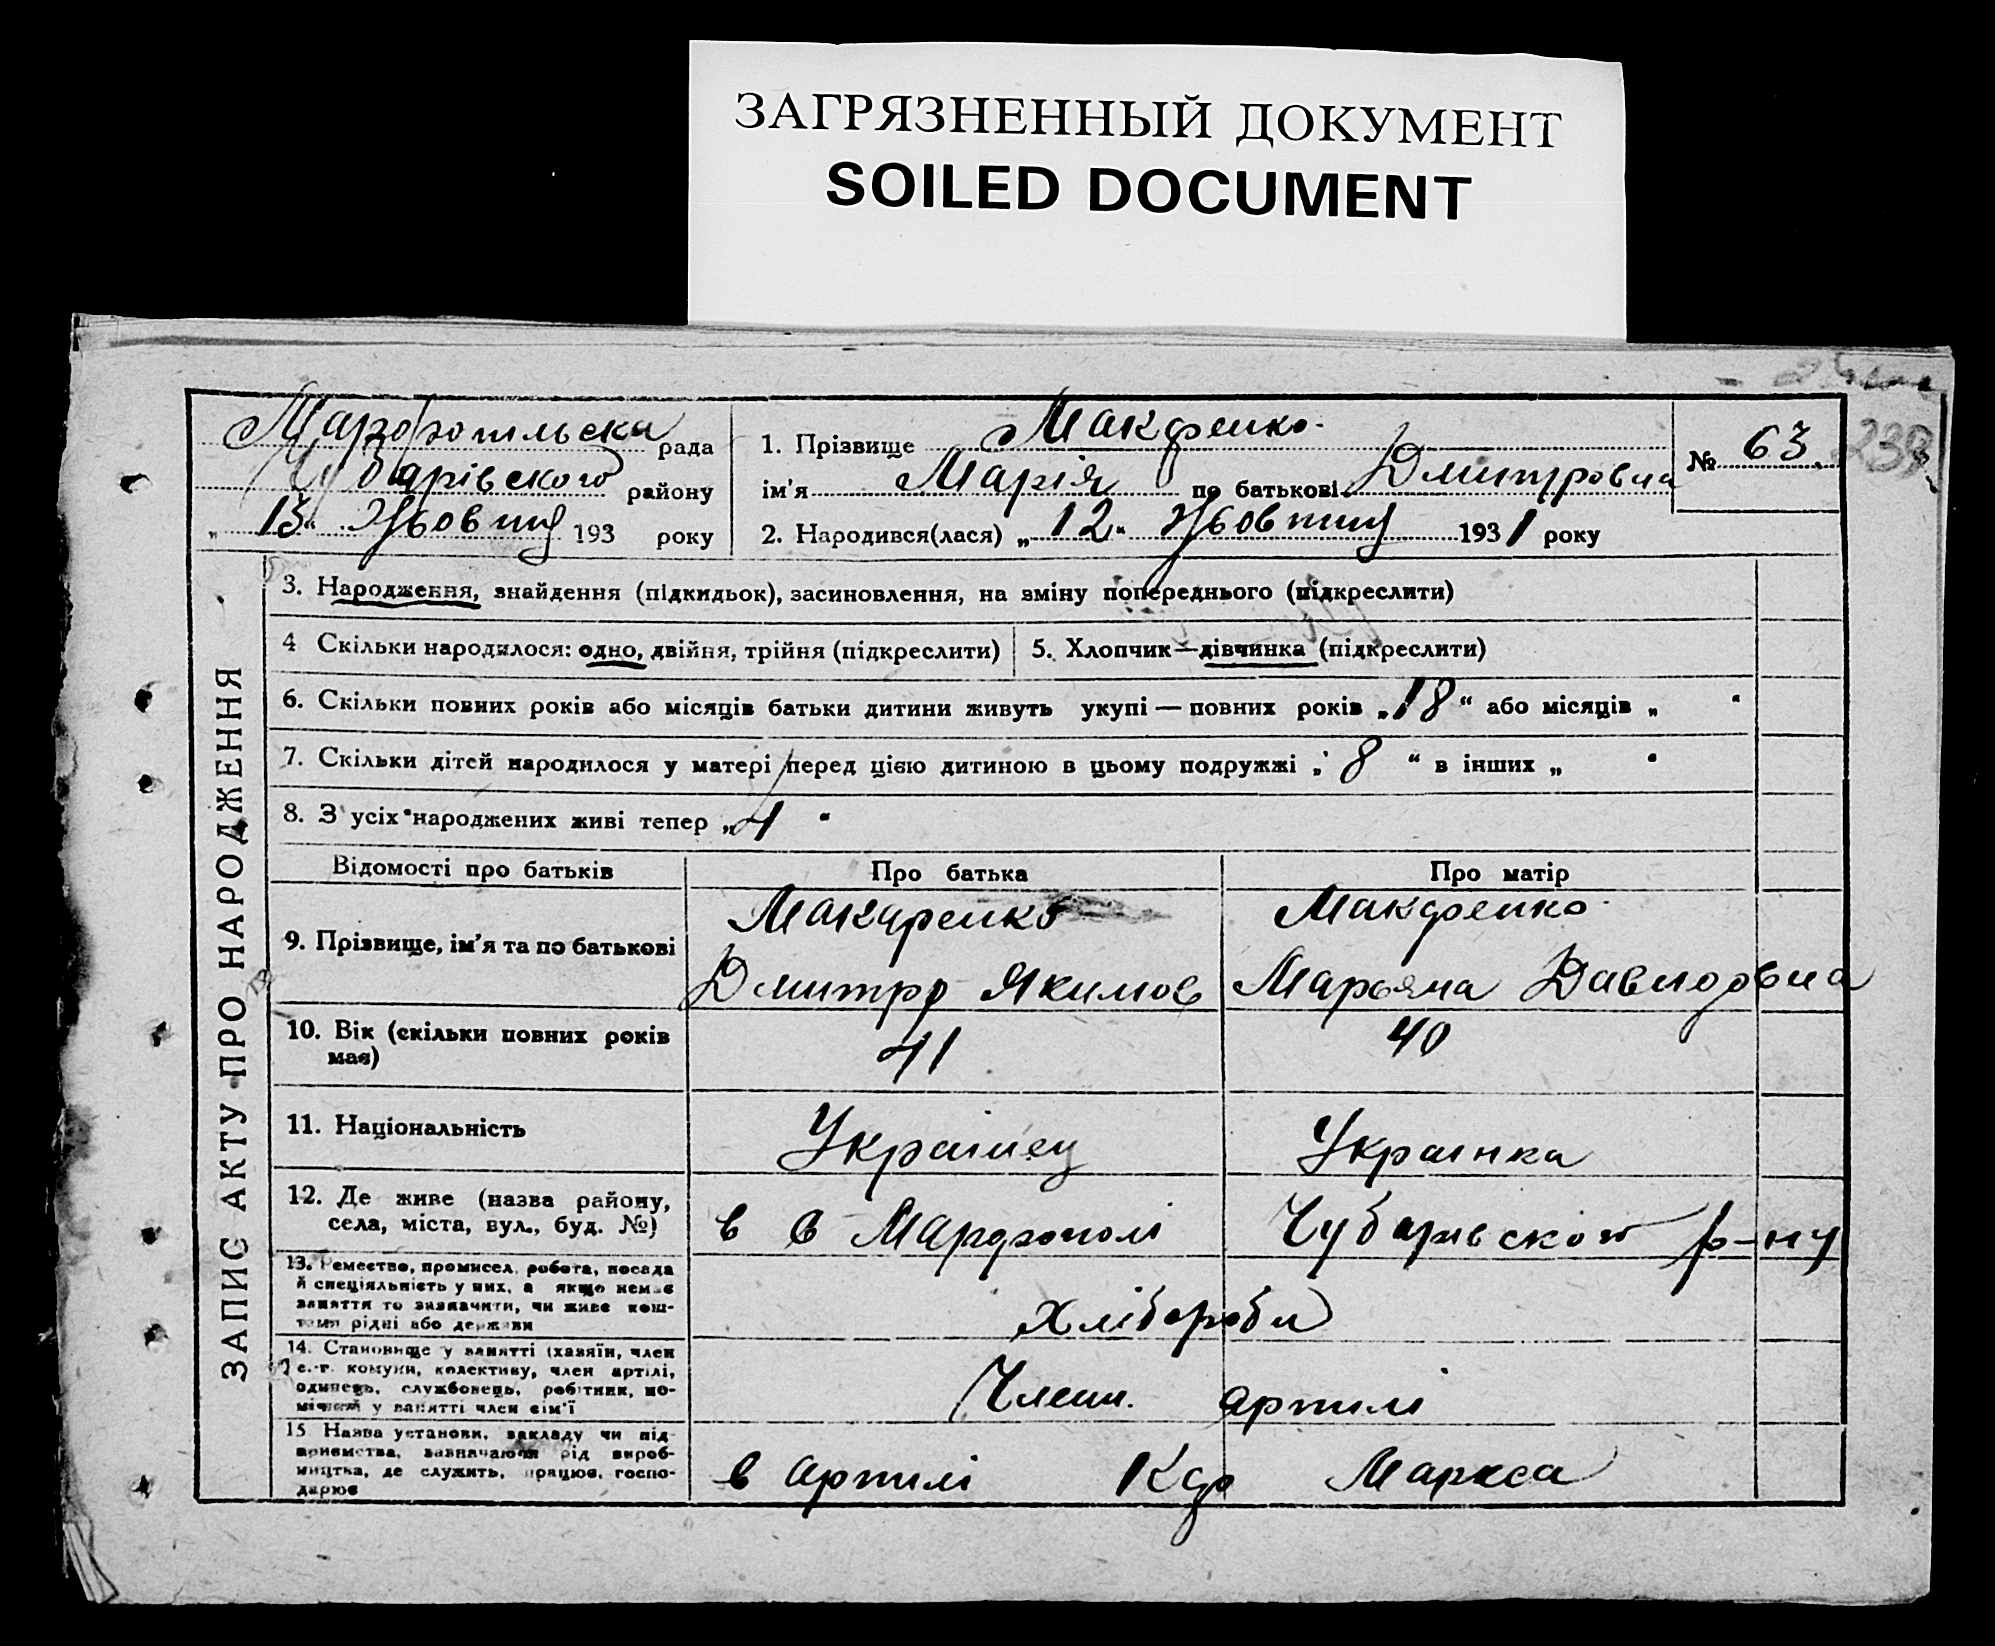 ЗАГРЯЗНЕННЫЙ ДОКУМЕНТ
SOILED DOCUMENT
Марфопільська рада
Чубарівського району
„ 13 " Жовтня 193 року
1. Прізвище Макаренко
ім'я Марія по батькові Дмитровна
2. Народився(лася) „ 12 " Жовтня 1931 року
№ 63
239
ЗАПИС АКТУ ПРО НАРОДЖЕННЯ
3. Народження, знайдення (підкидьок), засиновлення, на зміну попереднього (підкреслити)
4 Скільки народилося: одно, двійня, трійня (підкреслити)
5. Хлопчик—дівчинка (підкреслити)
6. Скільки повних років або місяців батьки дитини живуть укупі — повних років „ 18 " або місяців „ "
7. Скільки дітей народилося у матері перед цією дитиною в цьому подружжі „ 8 " в інших „ "
8. З усіх народжених живі тепер „ 4 "
Відомості про батьків Про батька Про матір
9. Прізвище, ім'я та по батькові
Макаренко
Дмитро Якимов
Макаренко
Марьяна Давидовна
10. Вік (скільки повних років
має)
41
40
11. Національність
Українец
Українка
12. Де живе (назва району,
села, міста, вул., буд. №)
в с Марфополі Чубарівского р-ну
13. Ремество, промисел, робота, посада
й спеціяльність у них, а якщо немає
заняття то зазначити, чи живе кош-
тами рідні або держави
Хлібороби
14. Становище у занятті (хазяїн, член
с.-г. комуни, колективу, член артілі,
одинець, службовець, робітник, по-
мічний у занятті член сім'ї
Члени артилі
15 Назва установи, закладу чи під-
приємства, зазначаючи рід вироб-
мицтва, де служить, працює, госпо-
дарює
в артилі Кар Маркса